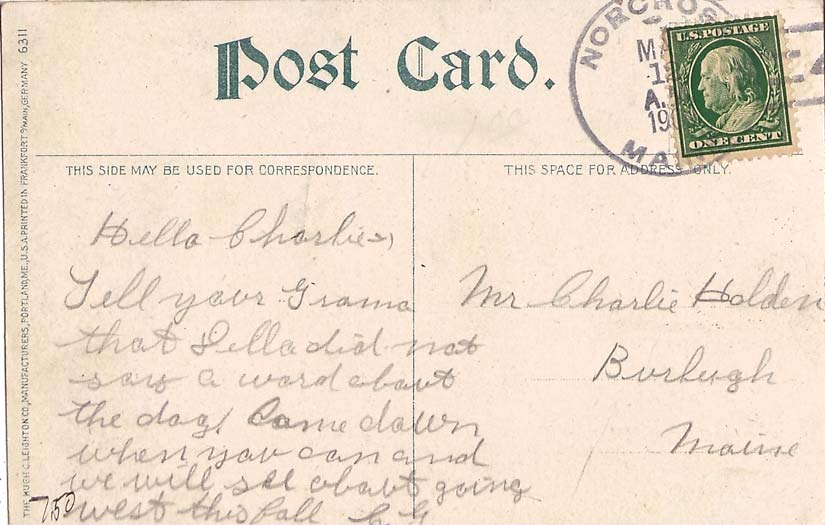 Post Card.
NORCROSS
MA
1
A.
19
MA
U.S. POSTAGE
ONE CENT
THIS SIDE MAY BE USED FOR CORRESPONDENCE.
THIS SPACE FOR ADDRESS ONLY.
Hello Charlie
Tell your Grama
that Della did not
say a word about
the dog, Come down
when you can and
we will see about going
west this fall
Mr Charlie Holden
Burleigh
Maine
750
THE HUGH C. LEIGHTON CO., MANUFACTURERS, PORTLAND, ME., U.S.A. PRINTED IN FRANKFORT o/MAIN, GERMANY 6311